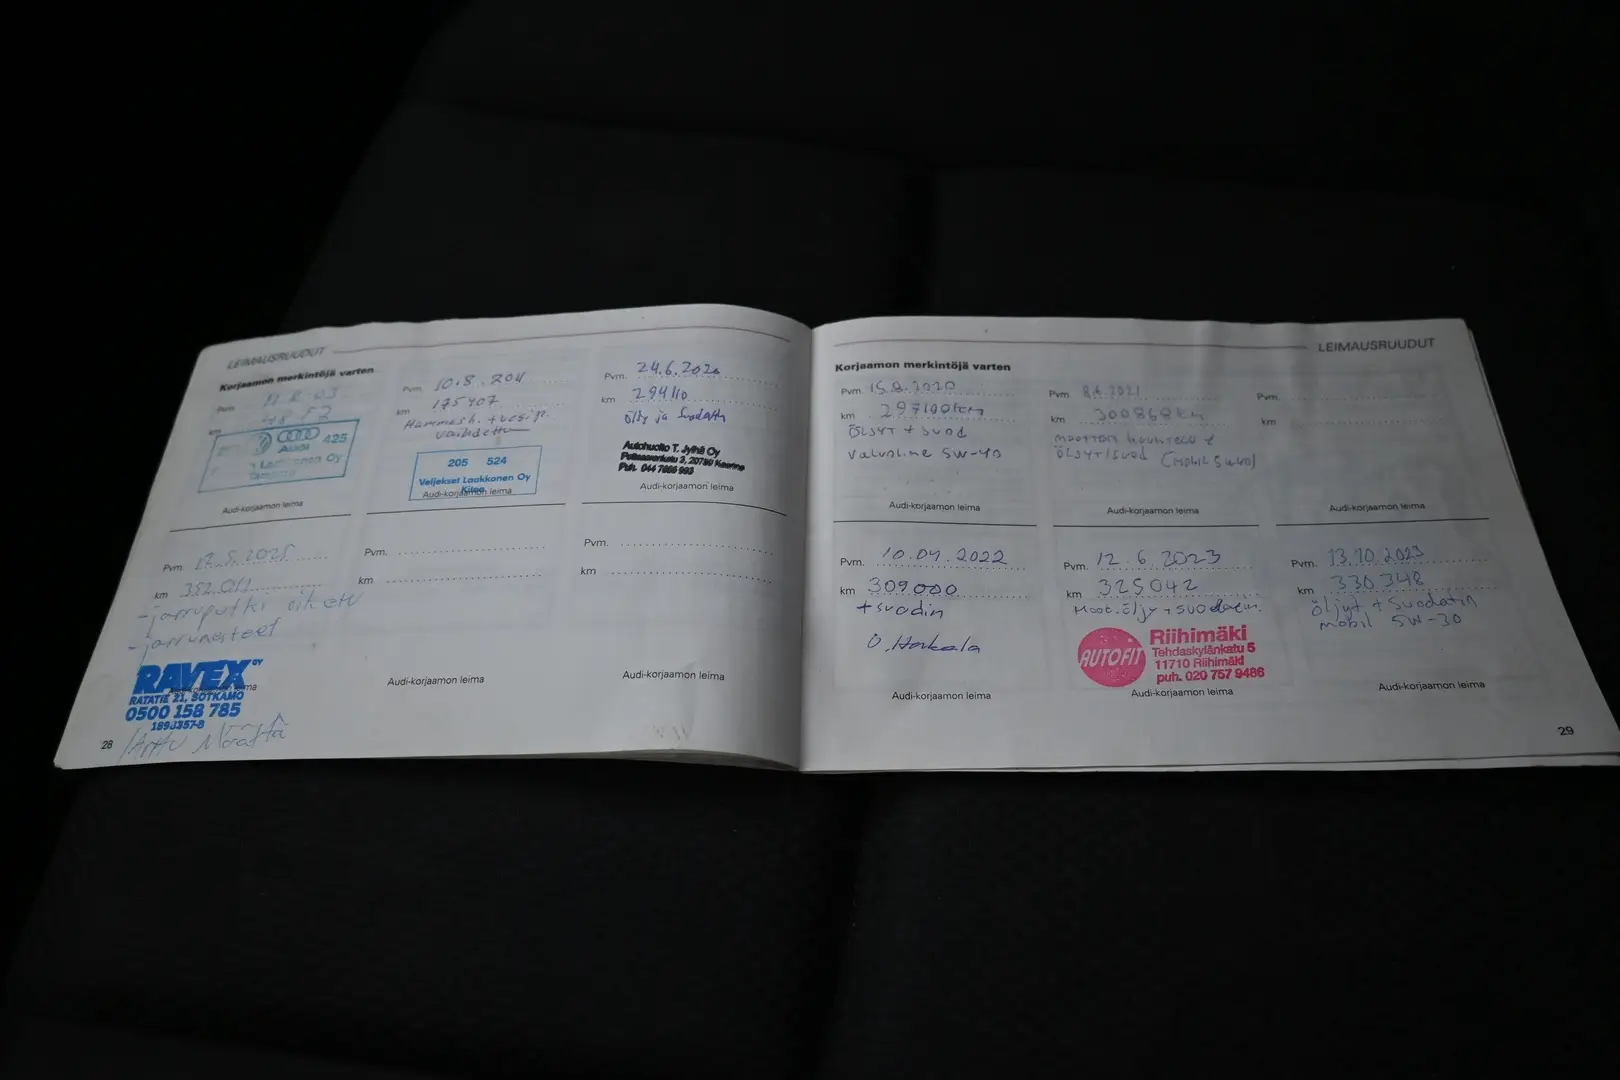 LEIMAUSRUUDUT
Korjaamon merkintöjä varten
Pvm
km
Audi
425
Laakkonen Oy
Audi-korjaamon leima
Pvm. 10.8.2011
km 175407
Hammash. + vesip.
vaihdettu
205 524
Veljekset Laakkonen Oy
Kitee
Audi-korjaamon leima
Pvm. 24.6.2020
km 294110
Öljy ja Suodatin
Autohuolto T. Jylhä Oy
20780 Kaarina
Puh.
Audi-korjaamon leima
Pvm. 17.5.2025
km 352011
-jarruputki oik etu
-jarrunesteet
RAVEX OY
RATATIE 21, SOTKAMO
0500 158 785
1898357-8
Arttu Määttä
Pvm.
km
Audi-korjaamon leima
Pvm.
km
Audi-korjaamon leima
28
LEIMAUSRUUDUT
Korjaamon merkintöjä varten
Pvm. 15.8.2020
km 297100km
ÖLJYT + SUOD
Valvoline 5W-40
Audi-korjaamon leima
Pvm. 8.4.2021
km 300868km
moottori
ÖLJYT/SUOD (Mobil 5W40)
Audi-korjaamon leima
Pvm.
km
Audi-korjaamon leima
Pvm. 10.04.2022
km 309000
+ suodin
Audi-korjaamon leima
Pvm. 12.6.2023
km 325042
Moot.öljy + suodatin.
AUTOFIT
Riihimäki
Tehdaskylänkatu 5
11710 Riihimäki
puh. 020 757 9486
Audi-korjaamon leima
Pvm. 13.10.2023
km 330348
öljyt + Suodatin
mobil 5W-30
Audi-korjaamon leima
29